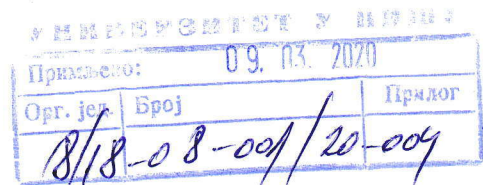 УНИВЕРЗИТЕТ У НИШУ
Примљено: 09. 03. 2020
Орг. јед. Број Прилог
8/18-08-001/20-004